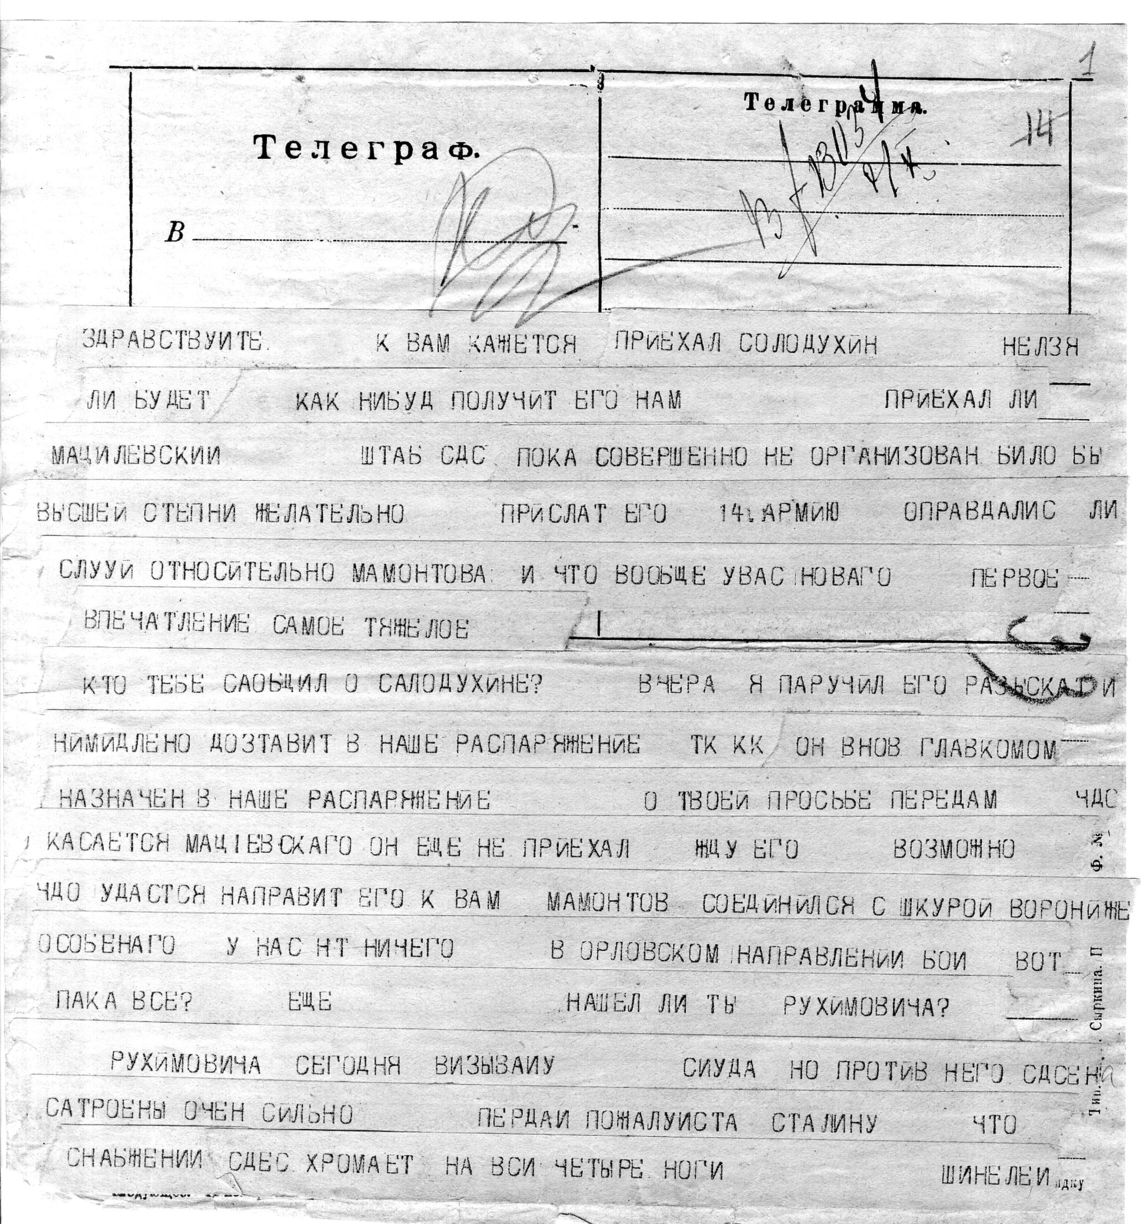 1
Телеграф.
Телеграмма.
14
В
ЗДРАВСТВУИТЕ К ВАМ КАЖЕТСЯ ПРИЕХАЛ СОЛОДУХИН НЕЛЗЯ
ЛИ БУДЕТ КАК НИБУД ПОЛУЧИТ ЕГО НАМ ПРИЕХАЛ ЛИ
МАЦИЛЕВСКИИ ШТАБ СДС ПОКА СОВЕРШЕННО НЕ ОРГАНИЗОВАН БИЛО БЫ
ВЫСШЕЙ СТЕПНИ ЖЕЛАТЕЛЬНО ПРИСЛАТ ЕГО 14 АРМИЮ ОПРАВДАЛИС ЛИ
СЛУУЙ ОТНОСИТЕЛЬНО МАМОНТОВА И ЧТО ВООБЩЕ УВАС НОВАГО ПЕРВОЕ
ВПЕЧАТЛЕНИЕ САМОЕ ТЯЖЕЛОЕ
КТО ТЕБЕ САОБЩИЛ О САЛОДУХИНЕ? ВЧЕРА Я ПАРУЧИЛ ЕГО РАЗЫСКАТ И
НИМИДЛЕНО ДОЗТАВИТ В НАШЕ РАСПАРЯЖЕНИЕ ТК КК ОН ВНОВ ГЛАВКОМОМ
НАЗНАЧЕН В НАШЕ РАСПАРЯЖЕНИЕ О ТВОЕЙ ПРОСЬБЕ ПЕРЕДАМ ЧДО
КАСАЕТСЯ МАЦIЕВСКАГО ОН ЕЩЕ НЕ ПРИЕХАЛ ЖДУ ЕГО ВОЗМОЖНО
ЧДО УДАСТСЯ НАПРАВИТ ЕГО К ВАМ МАМОНТОВ СОЕДИНИЛСЯ С ШКУРОЙ ВОРОНИЖЕ
ОСОБЕНАГО У НАС НТ НИЧЕГО В ОРЛОВСКОМ НАПРАВЛЕНИИ БОИ ВОТ
ПАКА ВСЕ? ЕЩЕ НАШЕЛ ЛИ ТЫ РУХИМОВИЧА?
РУХИМОВИЧА СЕГОДНЯ ВИЗЫВАИУ СИУДА НО ПРОТИВ НЕГО СДСЕН
САТРОЕНЫ ОЧЕН СИЛЬНО ПЕРДАИ ПОЖАЛУИСТА СТАЛИНУ ЧТО
СНАБЖЕНИИ СДЕС ХРОМАЕТ НА ВСИ ЧЕТЫРЕ НОГИ ШИНЕЛЕИ
Ф. №
Тип. Сыркина. П